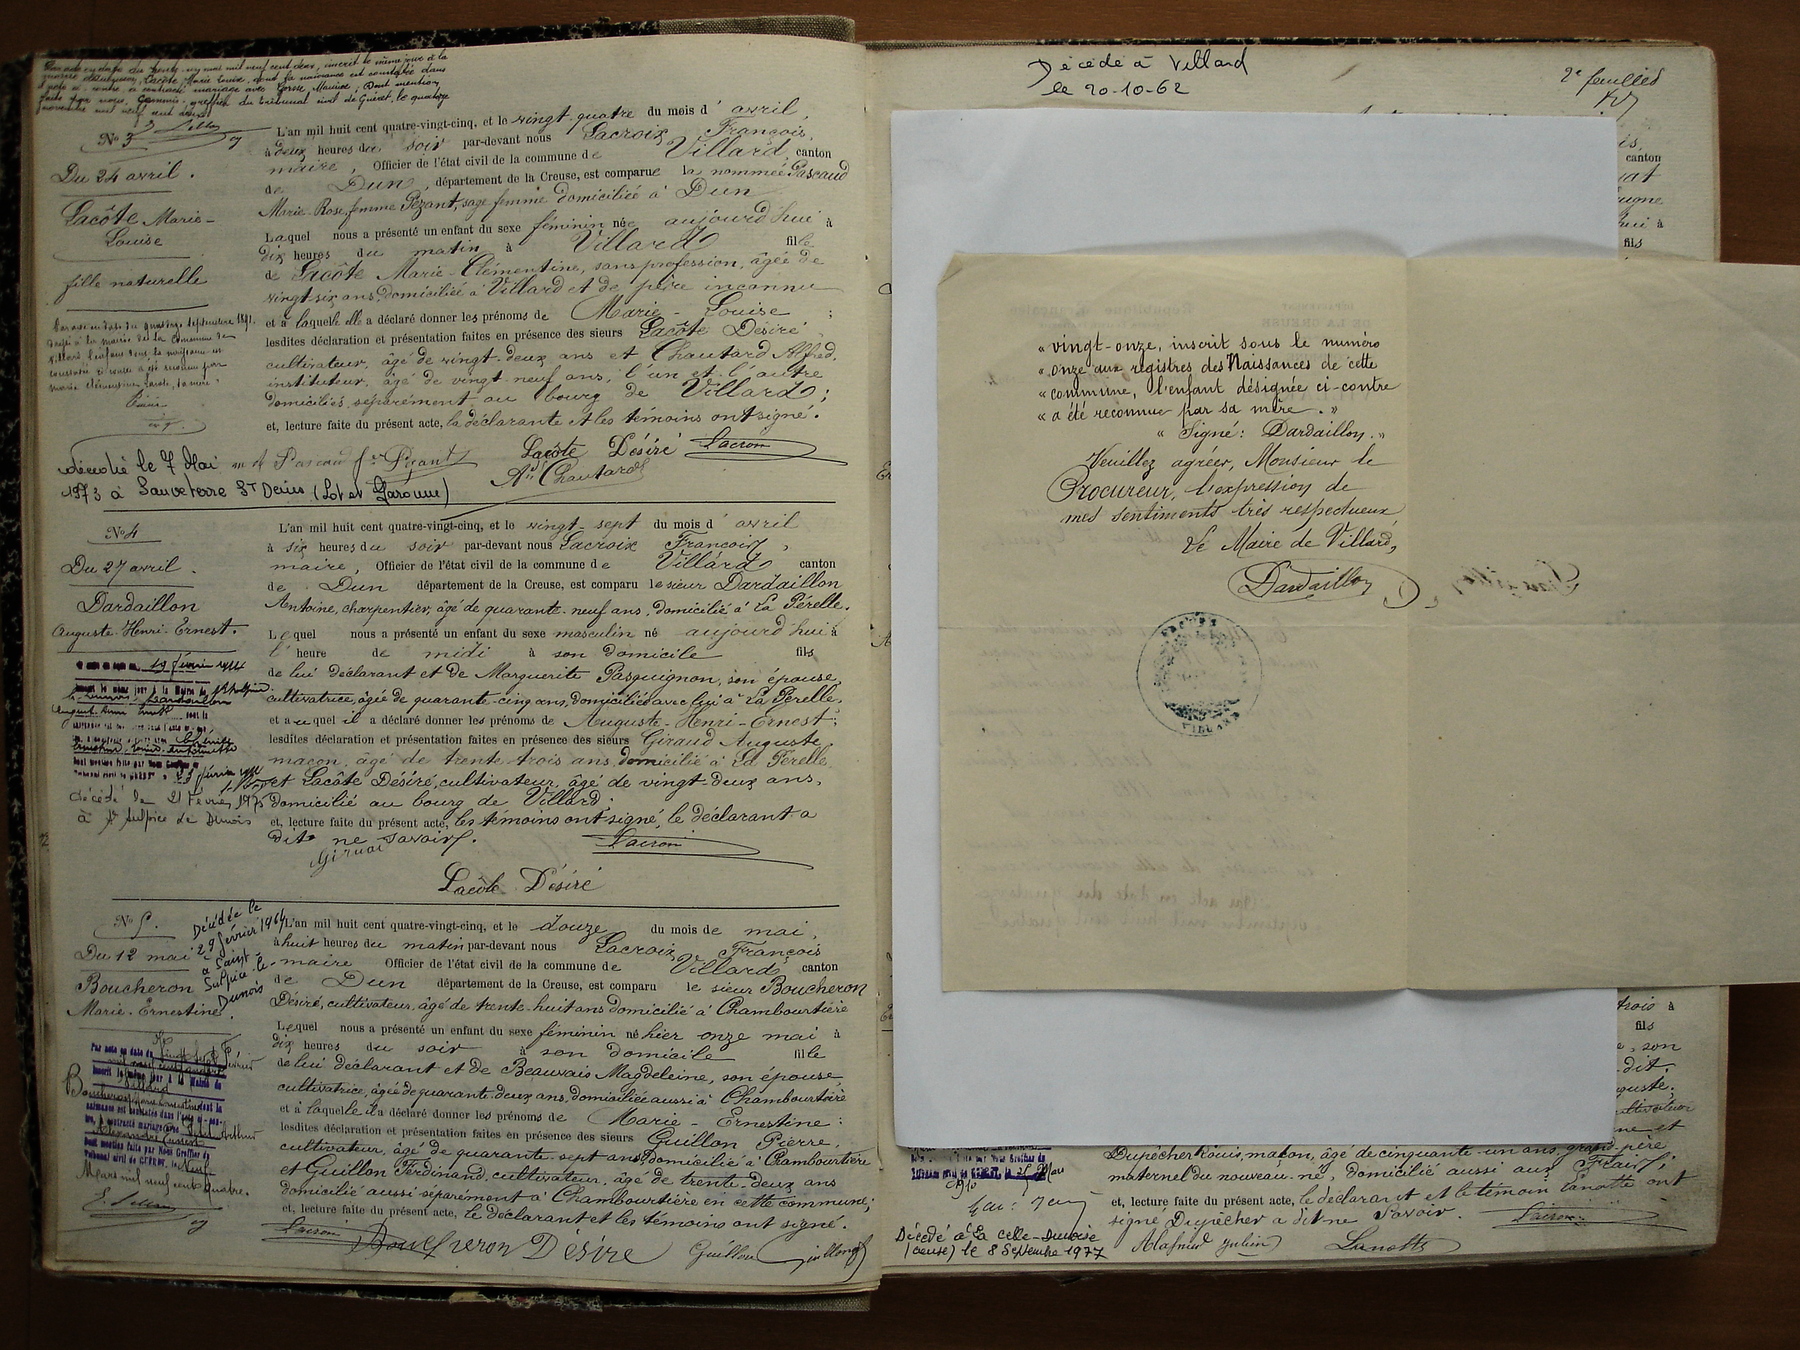 Par acte en date du trente-un mai mil neuf cent deux, inscrit le même jour à la
mairie Lacôte Marie Louise, dont la naissance est constatée dans
l'acte ci-contre, a contracté mariage avec Maurice ; Dont mention
faite par nous, Commis-greffier du tribunal civil de Guéret, le quatorze
novembre mil neuf cent deux
No 3
Du 24 avril.
Lacôte Marie-
Louise
fille naturelle
Par acte en date du quatorze septembre 1891,
à la mairie de la commune de
Villard l'enfant dont la naissance est
constatée ci-contre a été reconnue par
Marie Clémentine Lacôte, sa mère.
L'an mil huit cent quatre-vingt-cinq, et le vingt-quatre du mois d'avril,
à deux heures du soir par-devant nous Lacroix François,
maire, Officier de l'état civil de la commune de Villard, canton
de Dun, département de la Creuse, est comparue la nommée Pascaud
Marie-Rose, femme Pezant, sage femme domiciliée à Dun
Laquel nous a présenté un enfant du sexe féminin née aujourd'hui à
dix heures du matin à Villard fille
de Lacôte Marie-Clémentine, sans profession, âgée de
vingt-six ans, domiciliée à Villard et de père inconnu
et à laquelle elle a déclaré donner les prénoms de Marie-Louise ;
lesdites déclaration et présentation faites en présence des sieurs Lacôte Désiré,
cultivateur, âgé de vingt-deux ans et Chautard Alfred,
instituteur, âgé de vingt-neuf ans, l'un et l'autre
domiciliés séparément au bourg de Villard ;
et, lecture faite du présent acte, la déclarante et les témoins ont signé.
Lacôte Désiré Lacroix
fe Pezant
Ad Chautard
décédé le 7 Mai
1973 à Sauveterre St Denis (Lot et Garonne)
No 4
Du 27 avril.
Dardaillon
Auguste-Henri-Ernest.
19 février 1914
décédé le 21 Février 1975
à St Sulpice le Dunois
L'an mil huit cent quatre-vingt-cinq, et le vingt-sept du mois d'avril
à six heures du soir par-devant nous Lacroix François,
maire, Officier de l'état civil de la commune de Villard canton
de Dun département de la Creuse, est comparu le sieur Dardaillon
Antoine, charpentier, âgé de quarante-neuf ans, domicilié à La Pérelle.
Lequel nous a présenté un enfant du sexe masculin né aujourd'hui à
l'heure de midi à son domicile fils
de lui déclarant et de Marguerite Pasquignon, son épouse,
cultivatrice, âgée de quarante-cinq ans, domiciliée avec lui à La Pérelle,
et auquel il a déclaré donner les prénoms de Auguste-Henri-Ernest ;
lesdites déclaration et présentation faites en présence des sieurs Giraud Auguste,
maçon, âgé de trente-trois ans, domicilié à La Pérelle
et Lacôte Désiré, cultivateur, âgé de vingt-deux ans,
domicilié au bourg de Villard ;
et, lecture faite du présent acte, les témoins ont signé, le déclarant a
dit ne savoir.
Giraud
Lacroix
Lacôte Désiré
No 5.
Du 12 mai
Boucheron
Marie-Ernestine.
Décédée le
29 février 1964
à Saint-
Sulpice-le-
Dunois
Par acte en date du vingt-sept Février
mil neuf cent quatre
inscrit le même jour à la Mairie de
Villard
Boucheron Marie Ernestine dont la
naissance est constatée dans l'acte ci-con-
tre, a contracté mariage avec
dont mention faite par Nous Greffier du
Tribunal civil de GUÉRET, le Neuf
Mars mil neuf cent quatre.
L'an mil huit cent quatre-vingt-cinq, et le douze du mois de mai,
à huit heures du matin par-devant nous Lacroix, François
maire Officier de l'état civil de la commune de Villard, canton
de Dun département de la Creuse, est comparu le sieur Boucheron
Désiré, cultivateur, âgé de trente-huit ans domicilié à Chambourtière
Lequel nous a présenté un enfant du sexe féminin né hier onze mai à
dix heures du soir à son domicile fille
de lui déclarant et de Beauvais Magdeleine, son épouse
cultivatrice, âgée de quarante-deux ans, domiciliée aussi à Chambourtière
et à laquelle il a déclaré donner les prénoms de Marie-Ernestine ;
lesdites déclaration et présentation faites en présence des sieurs Guillon Pierre,
cultivateur, âgé de quarante-sept ans, domicilié à Chambourtière
et Guillon Ferdinand, cultivateur, âgé de trente-deux ans
domicilié aussi séparément à Chambourtière en cette commune ;
et, lecture faite du présent acte, le déclarant et les témoins ont signé.
Lacroix Boucheron Désiré Guillon Guillon
Décédé à Villard
le 20-10-62
2e feuillet
canton
fils
« vingt-onze, inscrit sous le numéro
« onze aux registres des Naissances de cette
« commune, l'enfant désignée ci-contre
« a été reconnue par sa mère. »
« Signé : Dardaillon. »
Veuillez agréer, Monsieur le
Procureur, l'expression de
mes sentiments très respectueux
Le Maire de Villard,
Dardaillon
VILLARD
trois à
fils
son
dit.
guste,
cultivateur
et
Dupêcher Louis, maçon, âgé de cinquante-un ans, grand père
maternel du nouveau-né, domicilié aussi aux
et, lecture faite du présent acte, le déclarant et le témoin Lanotte ont
signé, Dupêcher a dit ne savoir. Lacroix
Lanotte
1910
Décédé à La Celle-Dunoise
(Creuse) le 8 Septembre 1977